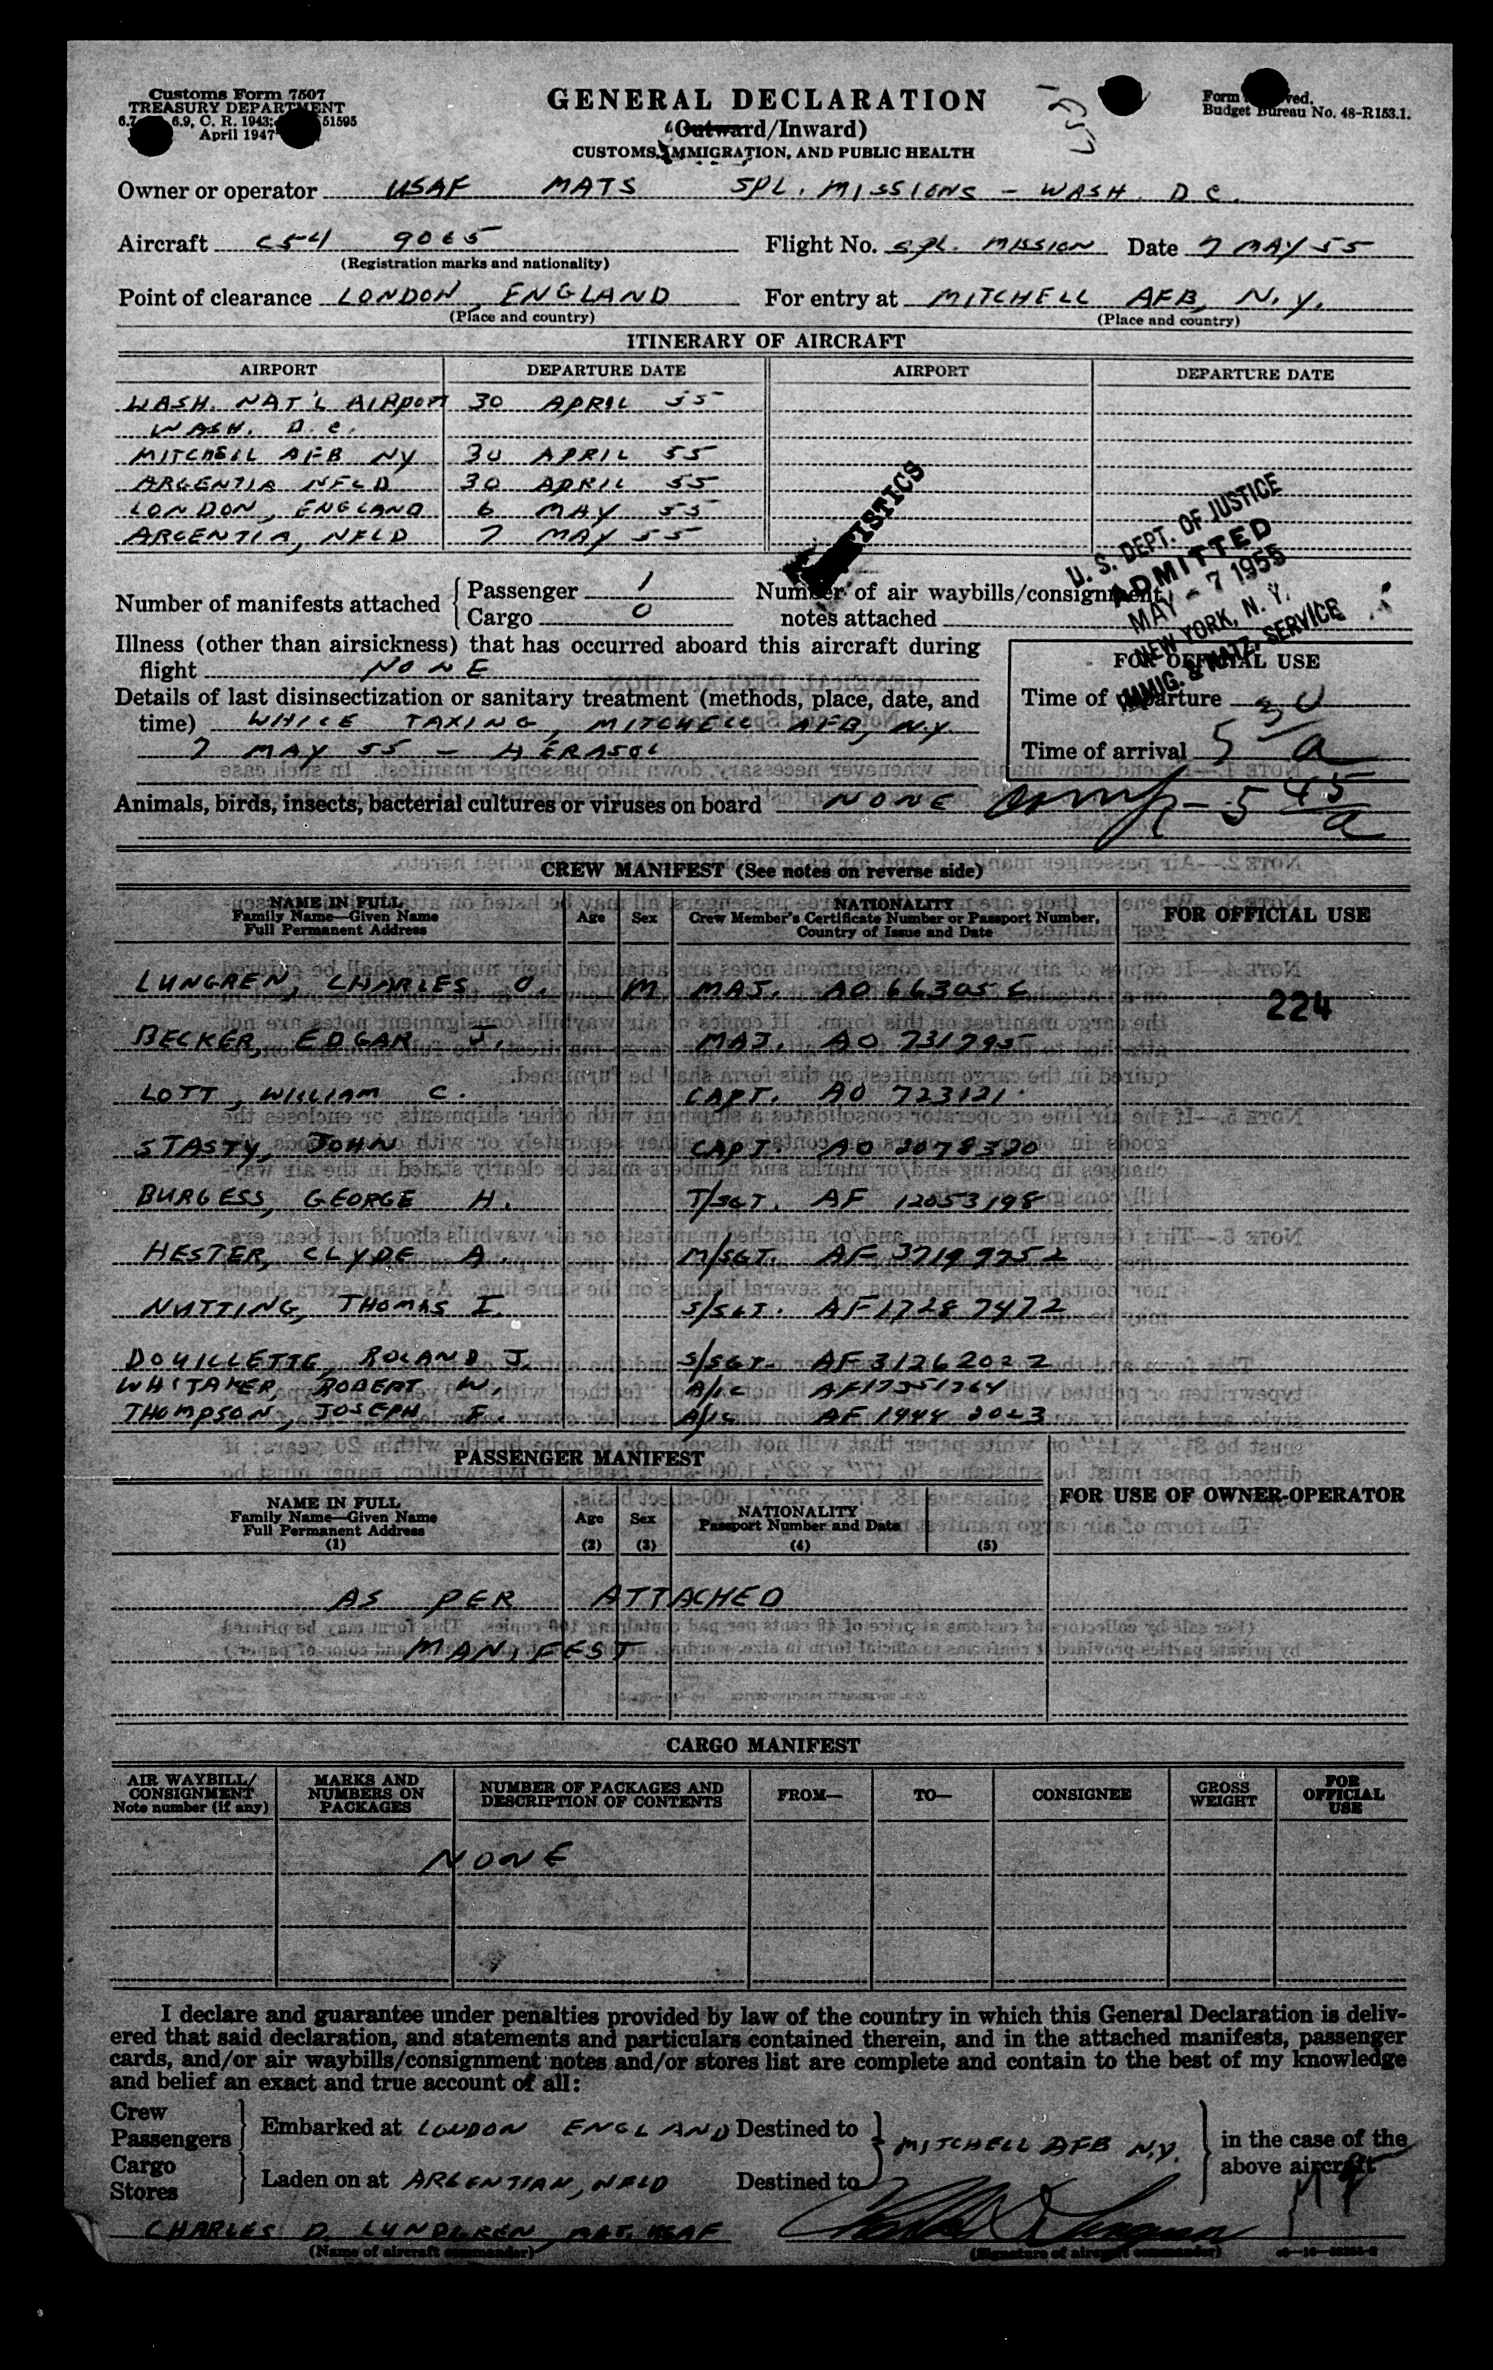 Customs Form 7507
TREASURY DEPARTMENT
6.9, C. R. 1943; 51595
April 1947
GENERAL DECLARATION
(Outward/Inward)
CUSTOMS, IMMIGRATION, AND PUBLIC HEALTH
Form
Budget Bureau No. 48-R153.1.
Owner or operator USAF MATS SPL. MISSIONS - WASH. D C.
Aircraft C54 9065 Flight No. SPL. MISSION Date 7 MAY 55
(Registration marks and nationality)
Point of clearance LONDON, ENGLAND For entry at MITCHELL AFB, N.Y.
(Place and country) (Place and country)
ITINERARY OF AIRCRAFT
AIRPORT DEPARTURE DATE AIRPORT DEPARTURE DATE
WASH. NAT'L AIRPORT 30 APRIL 55
WASH. D.C.
MITCHELL AFB NY 30 APRIL 55
ARGENTIA NFLD 30 APRIL 55
LONDON, ENGLAND 6 MAY 55
ARGENTIA, NFLD 7 MAY 55
U. S. DEPT. OF JUSTICE
ADMITTED
MAY - 7 1955
NEW YORK, N. Y.
IMMIG. & NATZ. SERVICE
Number of manifests attached Passenger 1 Number of air waybills/consignment
Cargo 0 notes attached
Illness (other than airsickness) that has occurred aboard this aircraft during
flight NONE
FOR OFFICIAL USE
Details of last disinsectization or sanitary treatment (methods, place, date, and
time) WHILE TAXING, MITCHELL AFB, N.Y.
7 MAY 55 - AERASOL
Time of departure
Time of arrival 5 30 a
Animals, birds, insects, bacterial cultures or viruses on board NONE
5 45 a
CREW MANIFEST (See notes on reverse side)
NAME IN FULL
Family Name—Given Name
Full Permanent Address
Age Sex
NATIONALITY
Crew Member's Certificate Number or Passport Number,
Country of Issue and Date
FOR OFFICIAL USE
LUNGREN, CHARLES D. M MAJ. AO 66305
224
BECKER, EDGAR J. MAJ. AO 731795
LOTT, WILLIAM C. CAPT. AO 723121
STASTY, JOHN CAPT. AO 2078320
BURGESS, GEORGE H. T/SGT. AF 12053198
HESTER, CLYDE A. M/SGT. AF 37199252
NUTTING, THOMAS I. S/SGT. AF17287472
DOUILLETTE, ROLAND J. S/SGT. AF 31262022
WHITAKER, ROBERT W. A/1C AF17351764
THOMPSON, JOSEPH F. A/1C AF 1444 2023
PASSENGER MANIFEST
NAME IN FULL
Family Name—Given Name
Full Permanent Address
(1)
Age
(2)
Sex
(3)
NATIONALITY
Passport Number and Date
(4) (5)
FOR USE OF OWNER-OPERATOR
AS PER ATTACHED
MANIFEST
CARGO MANIFEST
AIR WAYBILL/
CONSIGNMENT
Note number (if any)
MARKS AND
NUMBERS ON
PACKAGES
NUMBER OF PACKAGES AND
DESCRIPTION OF CONTENTS
FROM— TO— CONSIGNEE
GROSS
WEIGHT
FOR
OFFICIAL
USE
NONE
I declare and guarantee under penalties provided by law of the country in which this General Declaration is deliv-
ered that said declaration, and statements and particulars contained therein, and in the attached manifests, passenger
cards, and/or air waybills/consignment notes and/or stores list are complete and contain to the best of my knowledge
and belief an exact and true account of all:
Crew
Passengers
Embarked at LONDON ENGLAND Destined to
MITCHELL AFB N.Y.
in the case of the
above aircraft
Cargo
Stores
Laden on at ARGENTIAN, NFLD Destined to
CHARLES D LUNDGREN, MAJ. USAF
(Name of aircraft commander) (Signature of aircraft commander)